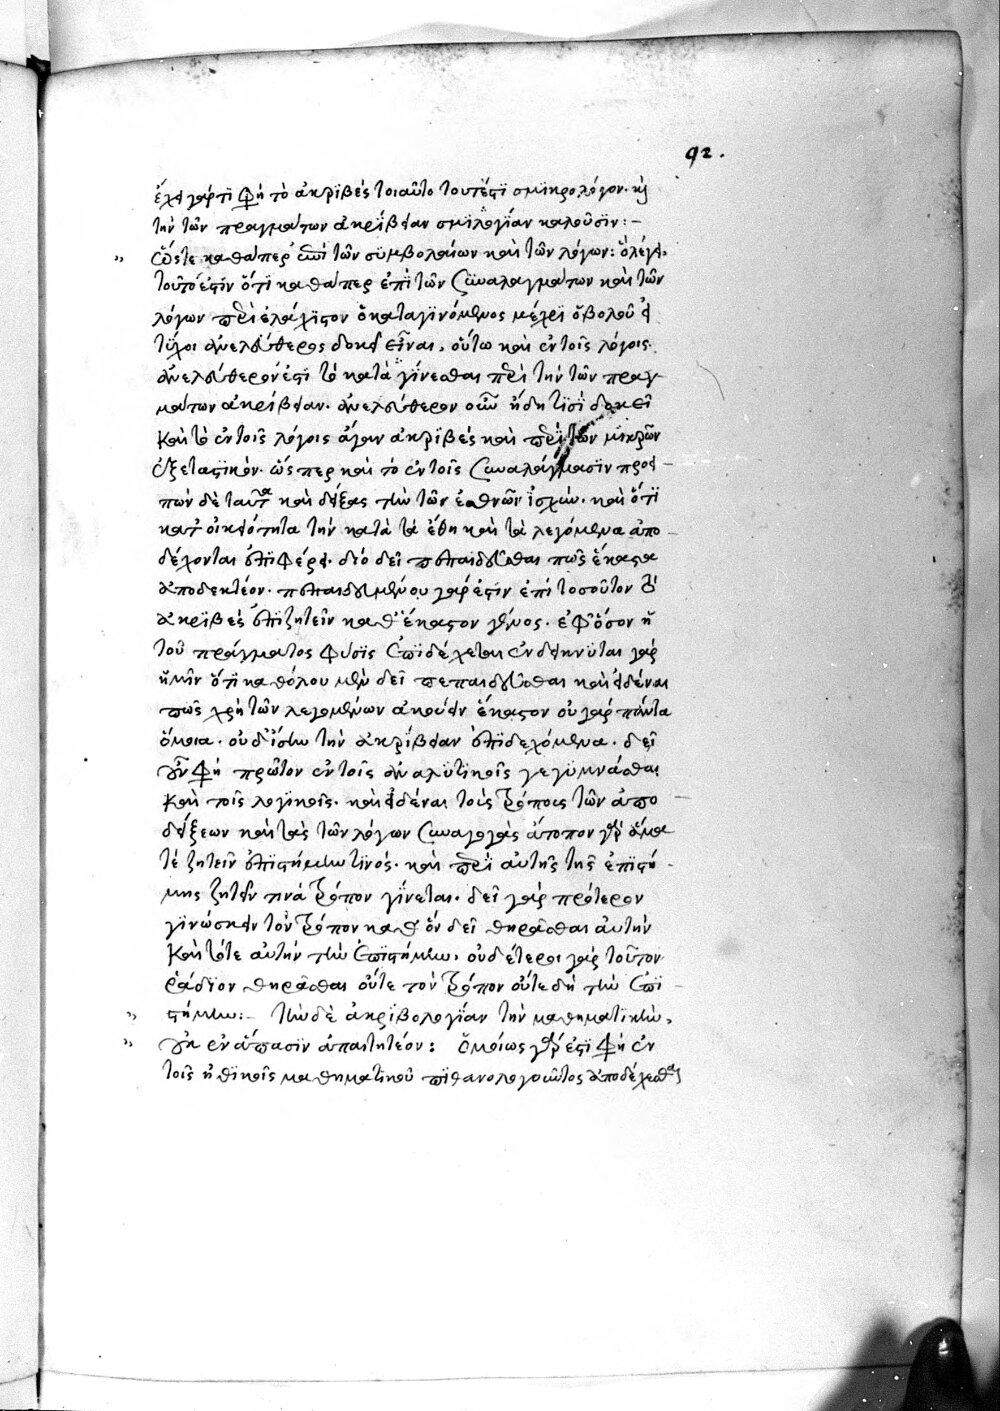 92.
ἔχει γάρ τι φη τὸ ἀκριβὲς τοιαῦτο τουτέστι σμικρολόγον. καὶ
τὴν τῶν πραγμάτων ἀκρίβειαν σμιλογίαν καλοῦσιν:–
ὥστε καθάπερ ἐπὶ τῶν συμβολαίων καὶ τῶν λόγων: ὃ λέγει,
τοῦτό ἐστιν ὅτι καθάπερ ἐπὶ τῶν συναλαγμάτων καὶ τῶν
λόγων περὶ ἐλάχιστον ὁ καταγινόμενος μέχρι ὀβολοῦ εἰ
τύχοι ἀνελεύθερος δοκεῖ εἶναι, οὕτω καὶ ἐν τοῖς λόγοις
ἀνελεύθερόν ἐστι τὸ κατὰ γίνεσθαι περὶ τὴν τῶν πραγ
μάτων ἀκρίβειαν. ἀνελεύθερον οὖν ἤδη τισὶ δοκεῖ
καὶ τὸ ἐν τοῖς λόγοις ἄγαν ἀκριβὲς καὶ περὶ τῶν μικρῶν
ἐξεταστικόν. ὥσπερ καὶ τὸ ἐν τοῖς συναλάγμασιν προει–
πὼν δὲ ταῦτα καὶ δείξας τὴν τῶν ἐθνῶν ἰσχύν. καὶ ὅτι
κατ οἰκειότητα τὴν κατὰ τὰ ἔθη καὶ τὰ λεγόμενα ἀπο–
δέχονται ἐπιφέρει. διὸ δεῖ πεπαιδεῦσθαι πῶς ἕκαστα
ἀποδεκτέον. πεπαιδευμένου γάρ ἐστιν ἐπὶ τοσοῦτον τὸ
ἀκριβὲς ἐπιζητεῖν καθ' ἕκαστον γένος. ἐφ' ὅσον ἡ
τοῦ πράγματος φύσις ἐπιδέχεται ἐνδείκνυται γὰρ
ἡμῖν ὅτι καθόλου μὲν δεῖ πεπαιδεῦσθαι καὶ εἰδέναι
πῶς χρὴ τῶν λεγομένων ἀκούειν ἕκαστον οὐ γὰρ πάντα
ὅμοια. οὐδ' ἴσην τὴν ἀκρίβειαν ἐπιδεχόμενα. δεῖ
οὖν φη πρῶτον ἐν τοῖς ἀναλυτικοῖς γεγυμνάσθαι
καὶ τοῖς λογικοῖς. καὶ εἰδέναι τοὺς τρόπους τῶν ἀπο–
δείξεων καὶ τὰς τῶν λόγων συναγωγὰς ἄτοπον γὰρ ἅμα
τὲ ζητεῖν ἐπιστήμην τινός. καὶ περὶ αὐτῆς τῆς ἐπιστή–
μης ζητεῖν τινὰ τρόπον γίνεται. δεῖ γὰρ πρότερον
γινώσκειν τὸν τρόπον καθ' ὃν δεῖ θηρᾶσθαι αὐτὴν
καὶ τότε αὐτὴν τὴν ἐπιστήμην. οὐδέτεροι γὰρ τοῦτον
ῥάδιον θηρᾶσθαι οὔτε τὸν τρόπον οὔτε δὴ τὴν ἐπι–
στήμην:– τὴν δὲ ἀκριβολογίαν τὴν μαθηματικὴν,
οὐκ ἐν ἅπασιν ἀπαιτητέον: ὅμοίως γὰρ ἐστι φη ἐν
τοῖς ἠθικοῖς μαθηματικοῦ πιθανολογοῦντος ἀποδέχεσθαι